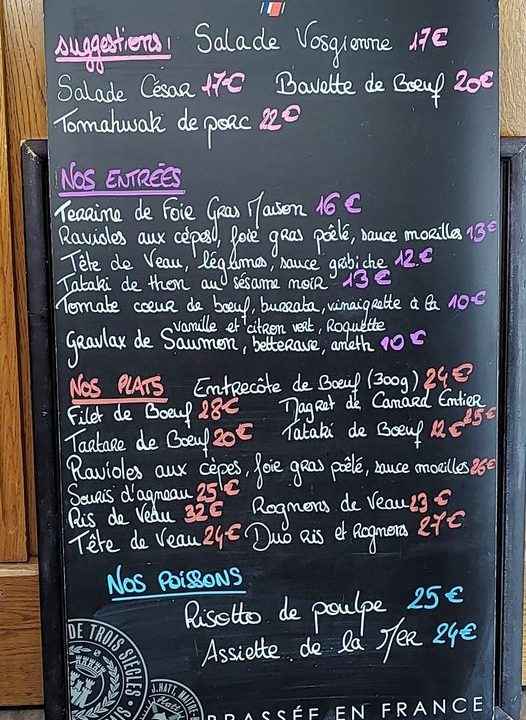 Suggestions : Salade Vosgienne 17€
Salade César 17€ Bavette de Bœuf 20€
Tomahwak de porc 22€
NOS ENTRÉES
Terrine de Foie Gras Maison 16€
Ravioles aux cèpes, foie gras poêlé, sauce morilles 13€
Tête de Veau, légumes, sauce gribiche 12€
Tataki de thon au sésame noir 13€
Tomate coeur de bœuf, burrata, vinaigrette à la 10€
vanille et citron vert, Roquette
Gravlax de Saumon, betterave, aneth 10€
NOS PLATS Entrecôte de Bœuf (300g) 24€
Filet de Bœuf 28€ Magret de Canard Entier
25€
Tartare de Bœuf 20€ Tataki de Bœuf 22€
Ravioles aux cèpes, foie gras poêlé, sauce morilles 26€
Souris d'agneau 25€
Rognons de Veau 23€
Ris de Veau 32€
Tête de Veau 24€ Duo Ris et Rognons 27€
NOS POISSONS
Risotto de poulpe 25€
Assiette de la Mer 24€
DE TROIS SIÈCLES
J. HATT, MAITRE
BRASSÉE EN FRANCE